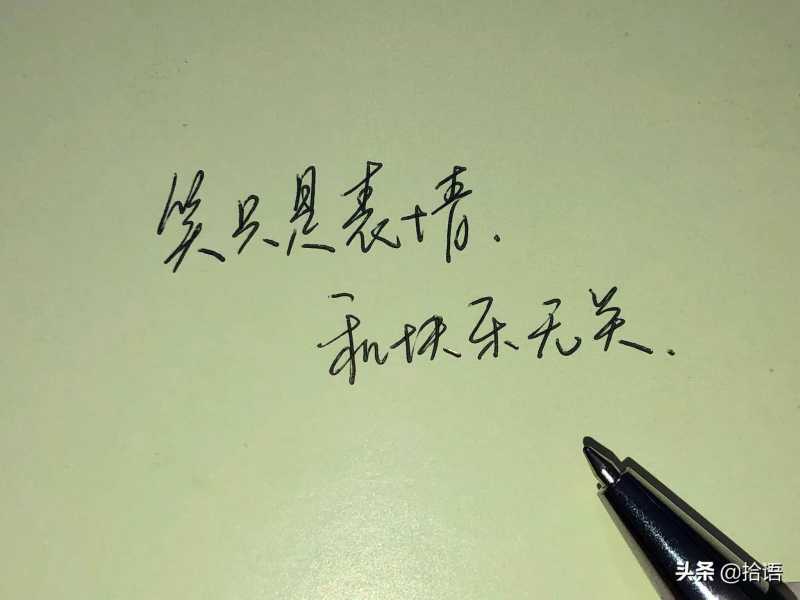 笑只是表情.
和快乐无关.
头条 @拾语